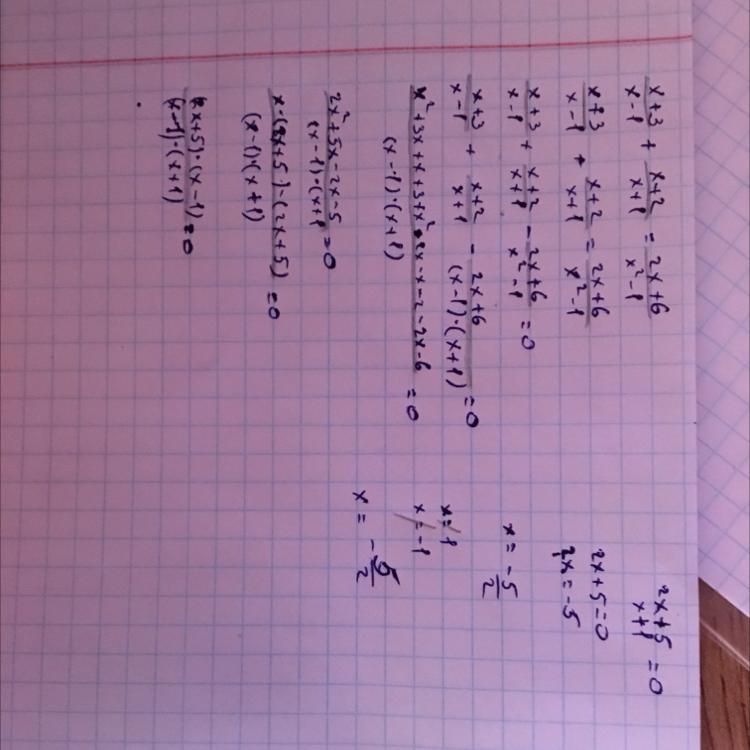 x+3/x-1 + x+2/x+1 = 2x+6/x²-1
x+3/x-1 + x+2/x+1 = 2x+6/x²-1
x+3/x-1 + x+2/x+1 - 2x+6/x²-1 = 0
x+3/x-1 + x+2/x+1 - 2x+6/(x-1)·(x+1) = 0
x²+3x+x+3+x²+2x-x-2-2x-6/(x-1)·(x+1) = 0
2x²+5x-2x-5/(x-1)·(x+1) = 0
x·(2x+5)-(2x+5)/(x-1)·(x+1) = 0
(2x+5)·(x-1)/(x-1)·(x+1) = 0
2x+5/x+1 = 0
2x+5=0
2x=-5
x = -5/2
x=1
x=-1
x = -5/2